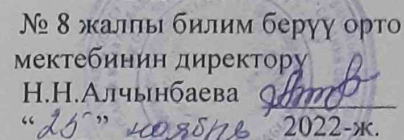 № 8 жалпы билим берүү орто
мектебинин директору
Н.Н.Алчынбаева
“25” ноябрь 2022-ж.